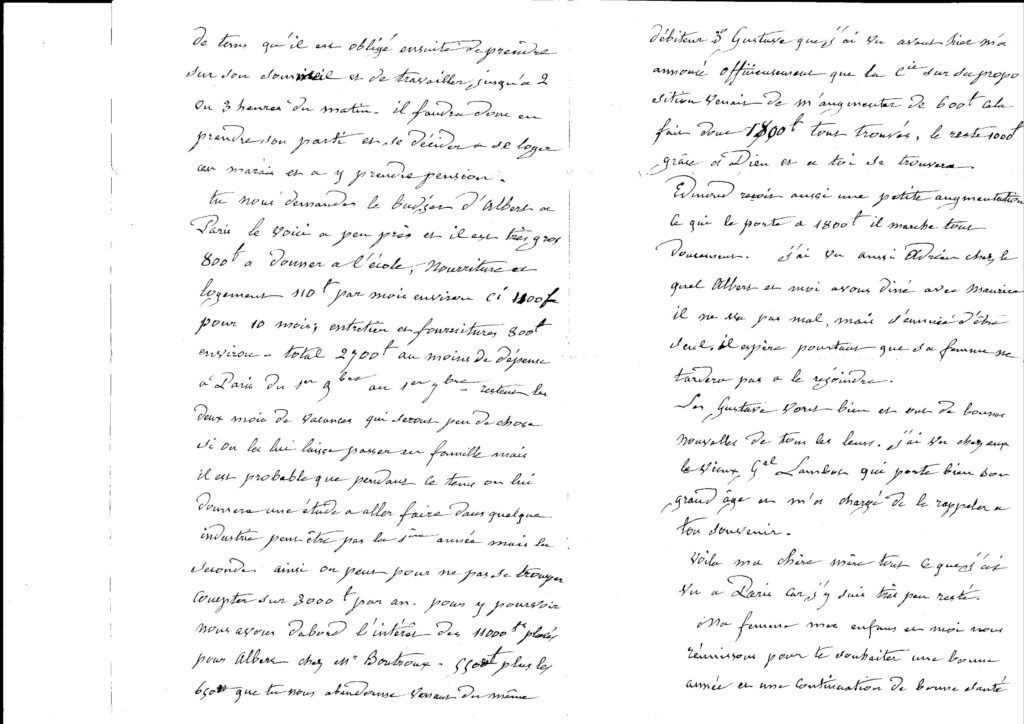 de tems qu'il est obligé ensuite de prendre
sur son sommeil et de travailler jusqu'à 2
ou 3 heures du matin. il faudra donc en
prendre son parti et se décider a se loger
au marais et a y prendre pension.
tu nous demandes le budget d'Albert a
Paris le voici a peu près et il est très gros
800f a donner a l'école, nourriture et
logement 110f par mois environ ci 1100f
pour 10 mois; entretien et fournitures 800f
environ - total 2700f au moins de dépense
a Paris du 1er 9bre au 1er 7bre restent les
deux mois de vacances qui seront peu de chose
si on les lui laisse passer en famille mais
il est probable que pendant ce tems on lui
donnera une étude a aller faire dans quelque
industrie peut être pas la 1ère année mais la
seconde ainsi on peut pour ne pas se tromper
compter sur 3000f par an. pour y pourvoir
nous avons d'abord l'intérêt des 11000fs placés
pour Albert chez Mr Boutroux - 550f plus les
650 que tu nous abandonne venant du même
débiteur Gustave que j'ai vu avant hier m'a
annoncé officieusement que la Cie sur sa propo
sition venait de m'augmenter de 600f cela
fait donc 1800f tout trouvés, le reste 1000f
grâce a Dieu et a toi se trouvera.
Edmond reçoit aussi une petite augmentation
ce qui le porte a 1800f il marche tout
doucement. j'ai vu aussi Adrien chez le
quel Albert et moi avons diné avec Maurice
il ne va pas mal, mais s'ennuie d'être
seul, il espère pourtant que sa femme ne
tardera pas a le rejoindre.
Les Gustave vont bien et ont de bonnes
nouvelles de tous les leurs. j'ai vu chez eux
le vieux Gal Lambot qui porte bien son
grand âge et m'a chargé de le rappeler a
ton souvenir.
Voila ma chère mère tout ce que j'ai
vu a Paris car j'y suis très peu resté.
Ma femme mes enfans et moi nous
réunissons pour te souhaiter une bonne
année et une continuation de bonne santé